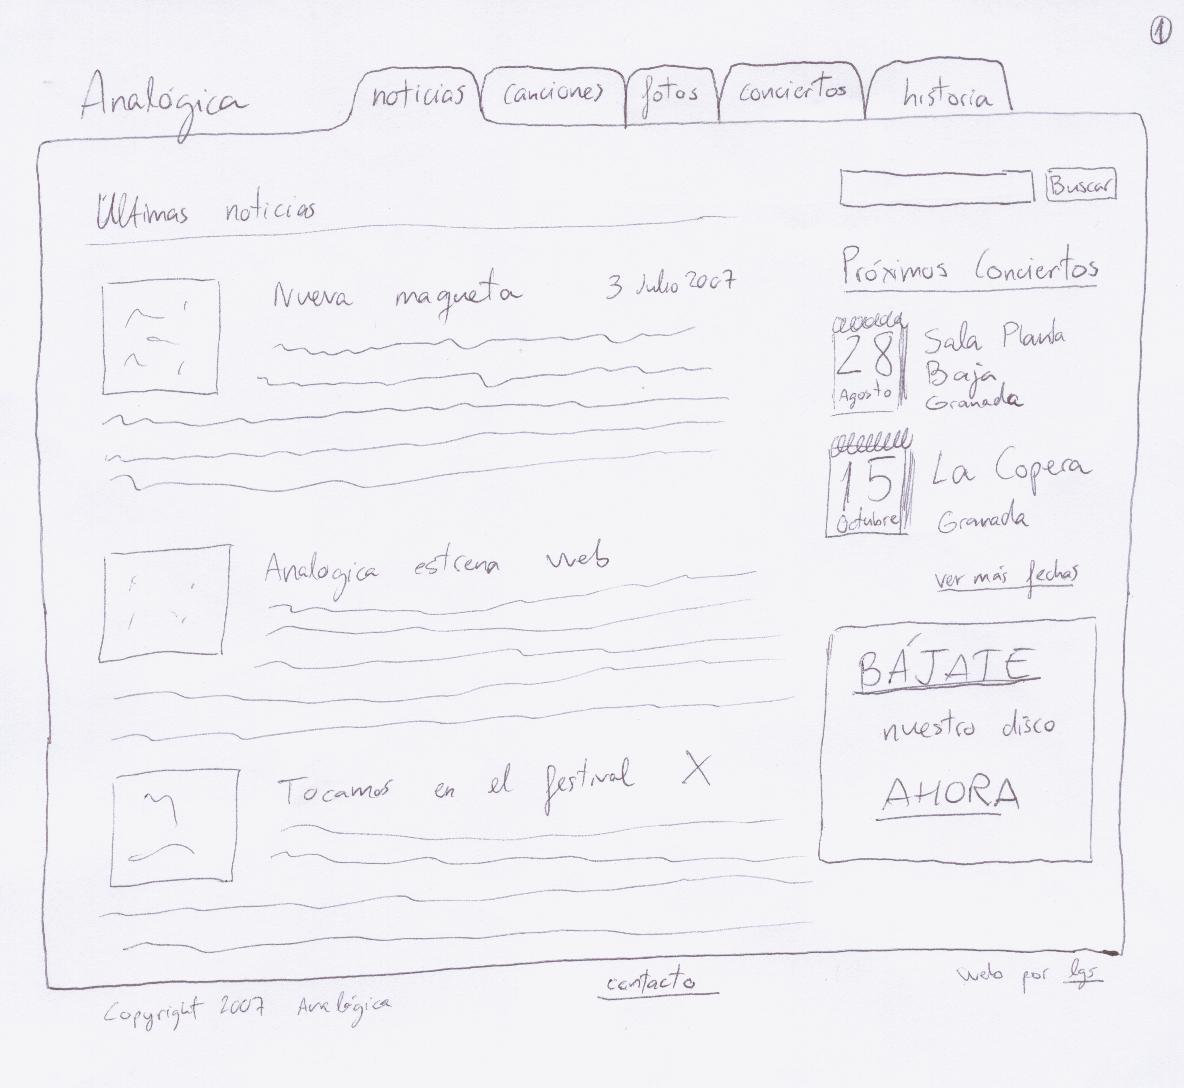 1
Analógica
noticias
canciones
fotos
conciertos
historia
Buscar
Últimas noticias
Nueva maqueta 3 Julio 2007
Analógica estrena web
Tocamos en el festival X
Próximos Conciertos
28
Agosto
Sala Planta
Baja
Granada
15
Octubre
La Copera
Granada
ver más fechas
BÁJATE
nuestro disco
AHORA
Copyright 2007 Analógica
contacto
web por lgs